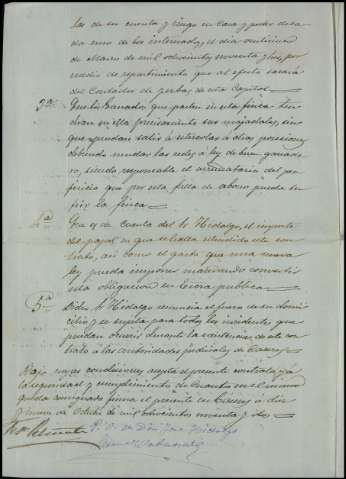 las de su cuenta y riesgo en casa y poder de ca
da uno de los interesados, el dia veintinueve
de Marzo de mil ochocientos noventa y tres, por
medio de repartimiento que al efecto sacará
del Contador de yerbas de esta Capital.
3ª Que los Ganados que pasten en esta finca ten
drán en ella precisamente sus majadales, sin
que puedan salir á otras posesiones,
debiendo mudar las redes á ley de buen ganade
ro, siendo responsable el arrendatario del per
juicio que por esta falta de abono pueda su
frir la finca.
4ª Que es de cuenta del Sr Hidalgo, el importe
del papel en que se halla estendido este con
trato, así como el gasto que una nueva
ley pueda imponer mandando convertir
esta obligacion en Escra publica.
5ª Dicho Sr Hidalgo renuncia el fuero de su domi
cilio y se sujeta para todos los incidentes que
puedan ocurrir durante la subsistencia de este con
trato á las autoridades judiciales de Caceres.
Bajo cuyas condiciones acepta el presente contrato y á
la seguridad y cumplimiento de cuanto en el mismo
queda consignado firma el presente en Cáceres á diez
y nueve de Octubre de mil ochocientos noventa y dos.
P. O. de Don Hidalgo